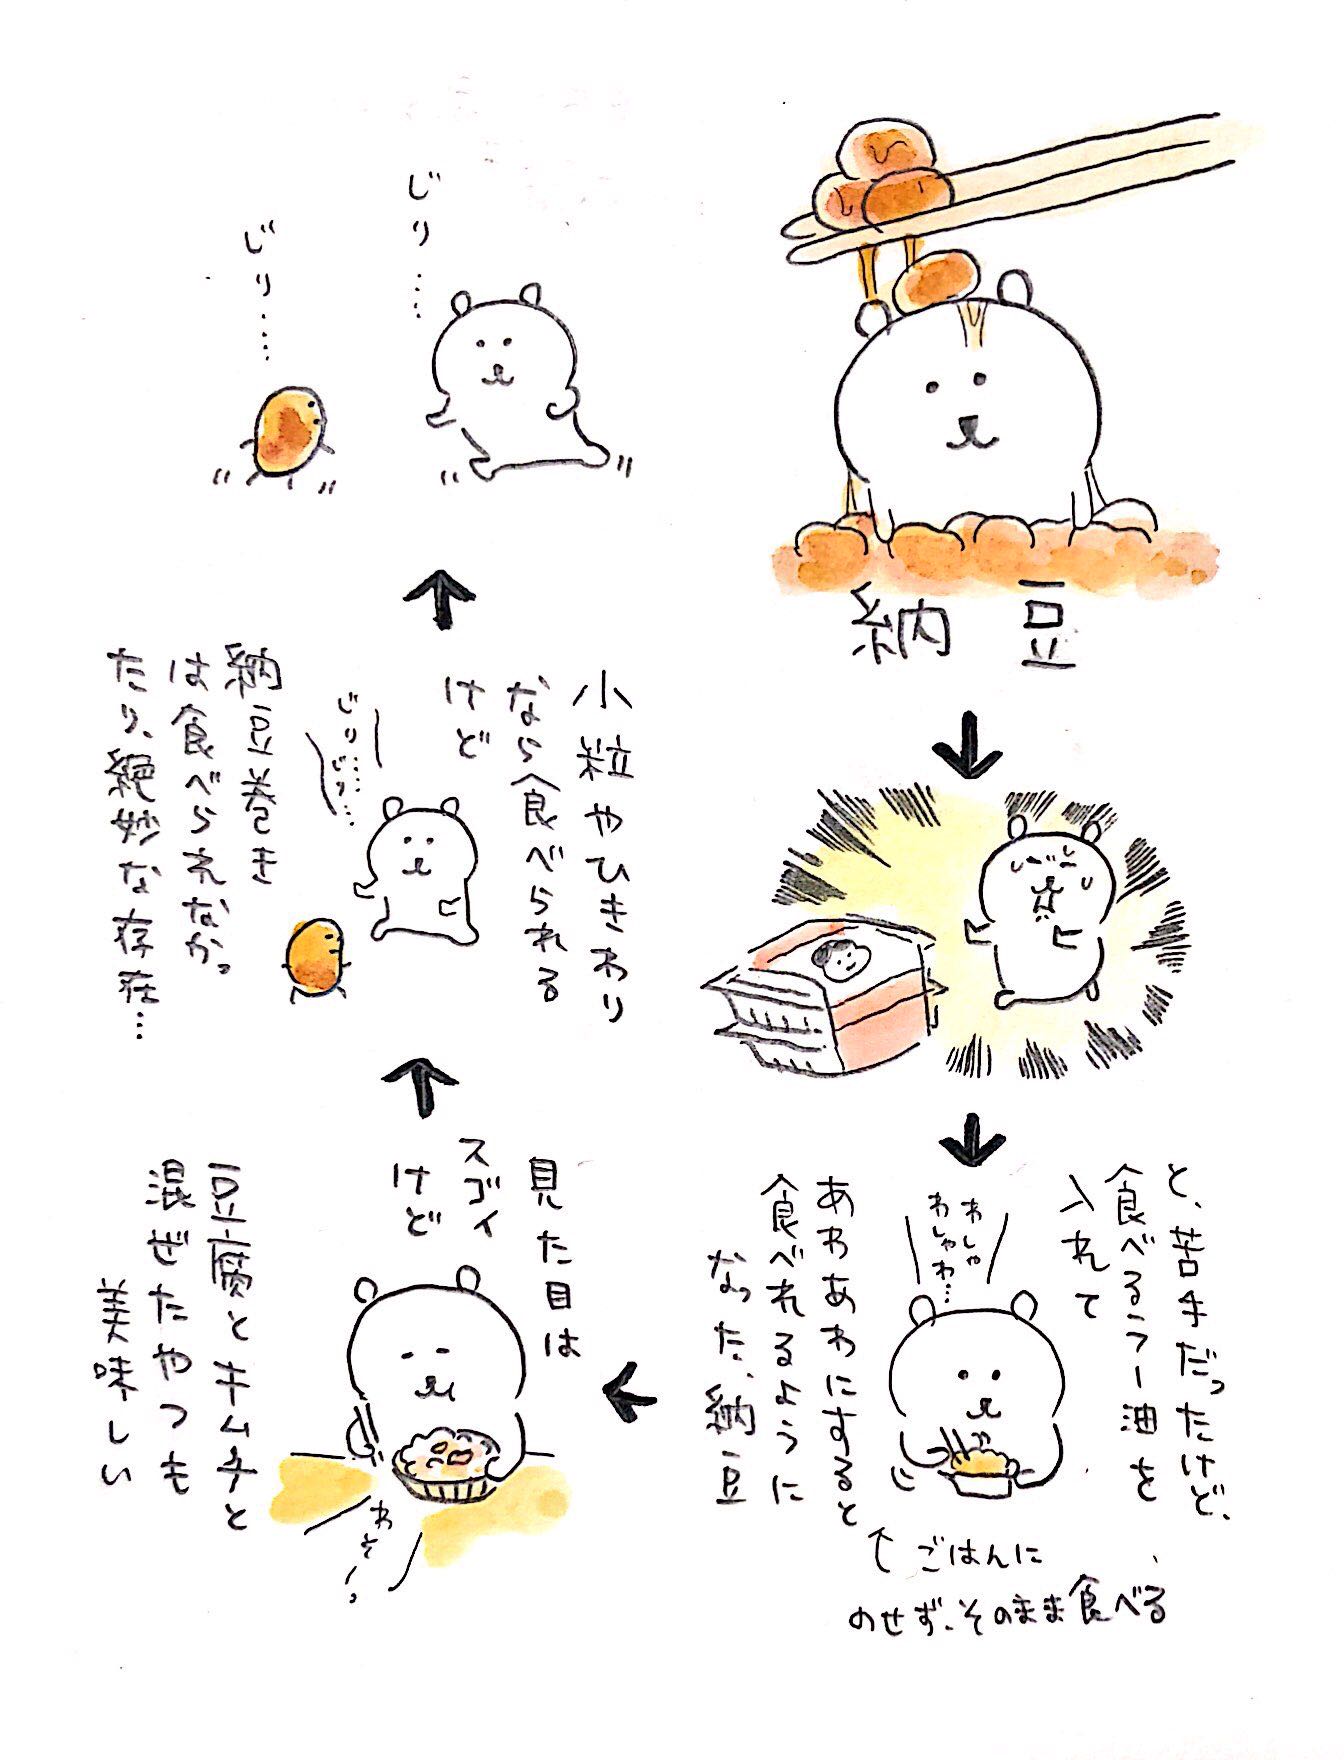 納豆
と、苦手だったけど、
食べるラー油を
入れて
わしゃ
わしゃわ…
あわあわにすると
食べれるように
なった、納豆
↑ごはんに
のせず、そのまま食べる
見た目は
スゴイ
けど
豆腐とキムチと
混ぜたやつも
美味しい
わそーっ
小粒やひきわり
なら食べられる
けど
じり……
じり…
納豆巻き
は食べられなかっ
たり、絶妙な存在…
じり……
じり……